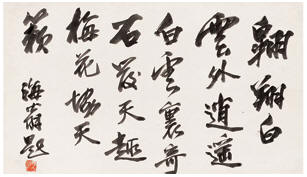 翱翔白
雲外逍遥
白雲裏奇
石發天趣
梅花協天
籟
海翁題